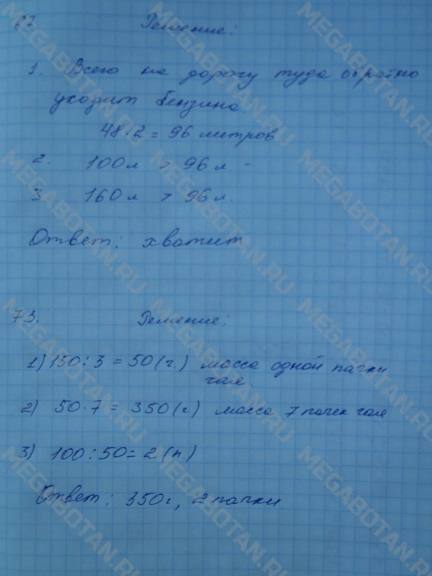 Решение:
1. Всего на дорогу туда обратно
уходит бензина
48·2 = 96 метров
2. 100 л > 96 л
3. 160 л > 96 л.
Ответ: хватит
73. Решение:
1) 150:3 = 50 (г.) масса одной пачки
чая
2) 50·7 = 350 (г) масса 7 пачек чая
3) 100:50 = 2 (п)
Ответ: 350 г, 2 пачки
MEGABOTAN.RU